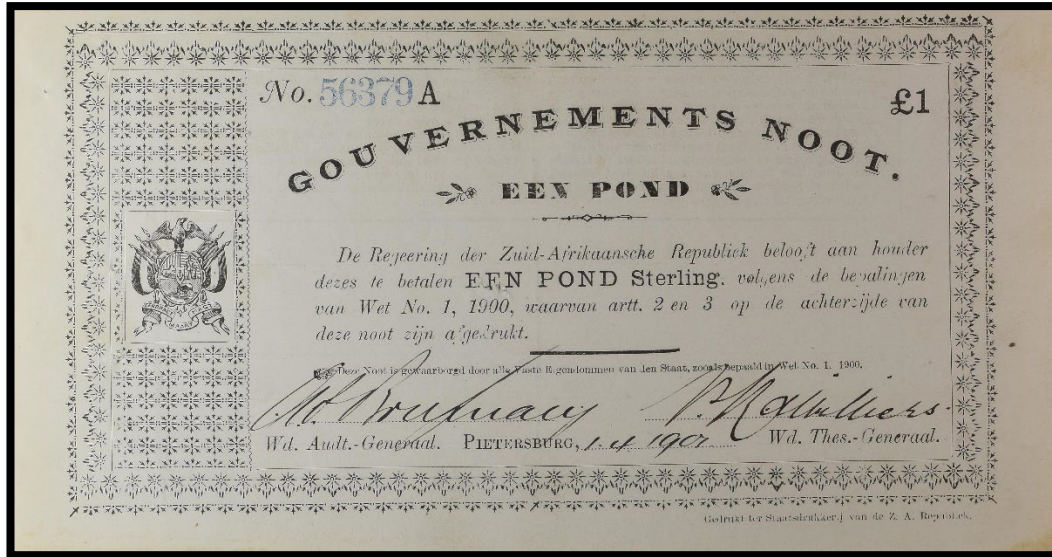 No. 56379 A
£1
GOUVERNEMENTS NOOT.
EEN POND
De Regeering der Zuid-Afrikaansche Republiek belooft aan houder
dezes te betalen EEN POND Sterling, volgens de bepalingen
van Wet No. 1, 1900, waarvan artt. 2 en 3 op de achterzijde van
deze noot zijn afgedrukt.
Deze Noot is gewaarborgd door alle Vaste Eigendommen van den Staat, zooals bepaald in Wet No. 1. 1900.
Wd. Audt.-Generaal. PIETERSBURG, 1.4 1901 Wd. Thes.-Generaal.
Gedrukt ter Staatsdrukkerij van de Z. A. Republiek.